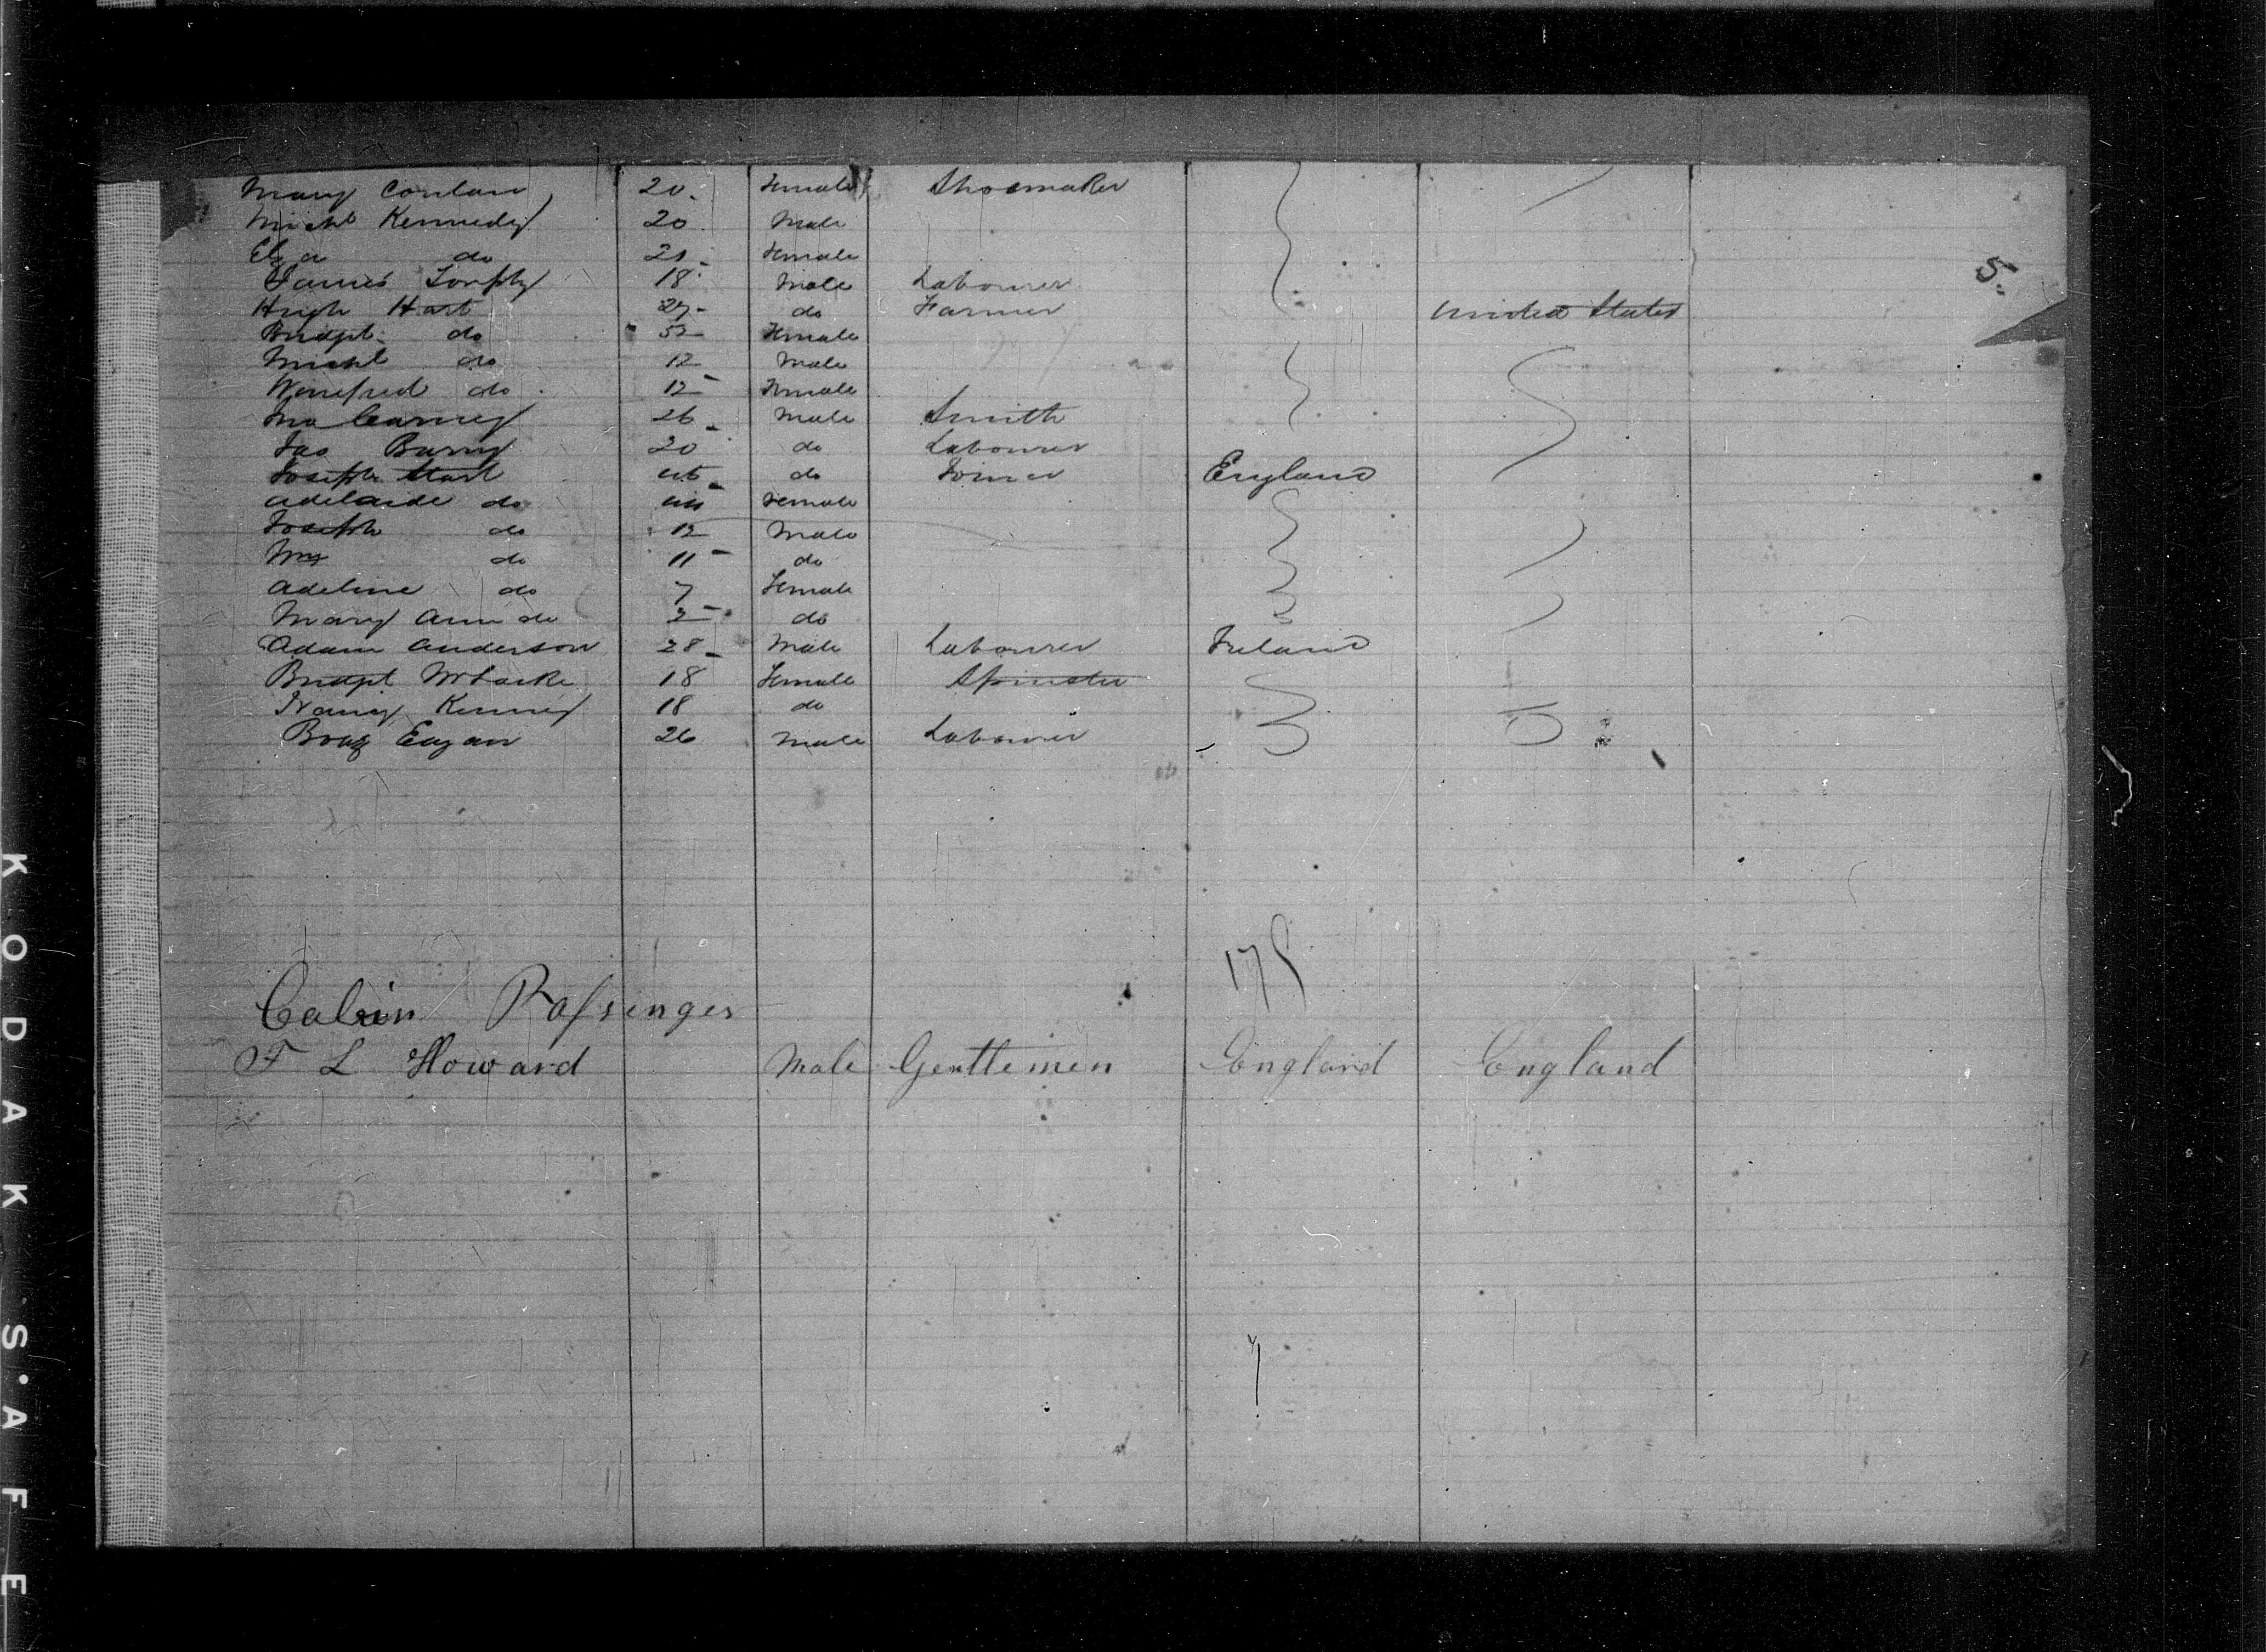 Mary Conlan 20 Female Shoemaker
Michl Kennedy 20 Male
Eliza do 21 Female
James 18 Male Labourer
Hugh Hart 27 do Farmer United States
Bridgt do Female
Michl do 12 Male
Winefred do 12 Female
Jno Carney 26 Male Smith
Jas Barry 20 do Labourer
Joseph do Joiner England
Adelaide do Female
Joseph do 12 Male
Wm do 11 do
Adeline do 7 Female
Mary Ann do do
Adam Anderson 28 Male Labourer Ireland
Bridgt 18 Female Spinster
Nancy Kenney 18 do
Eagan 26 Male Labourer
5
17
Cabin Passenger
F L Howard Male Gentlemen England England
KODAK S·A F E